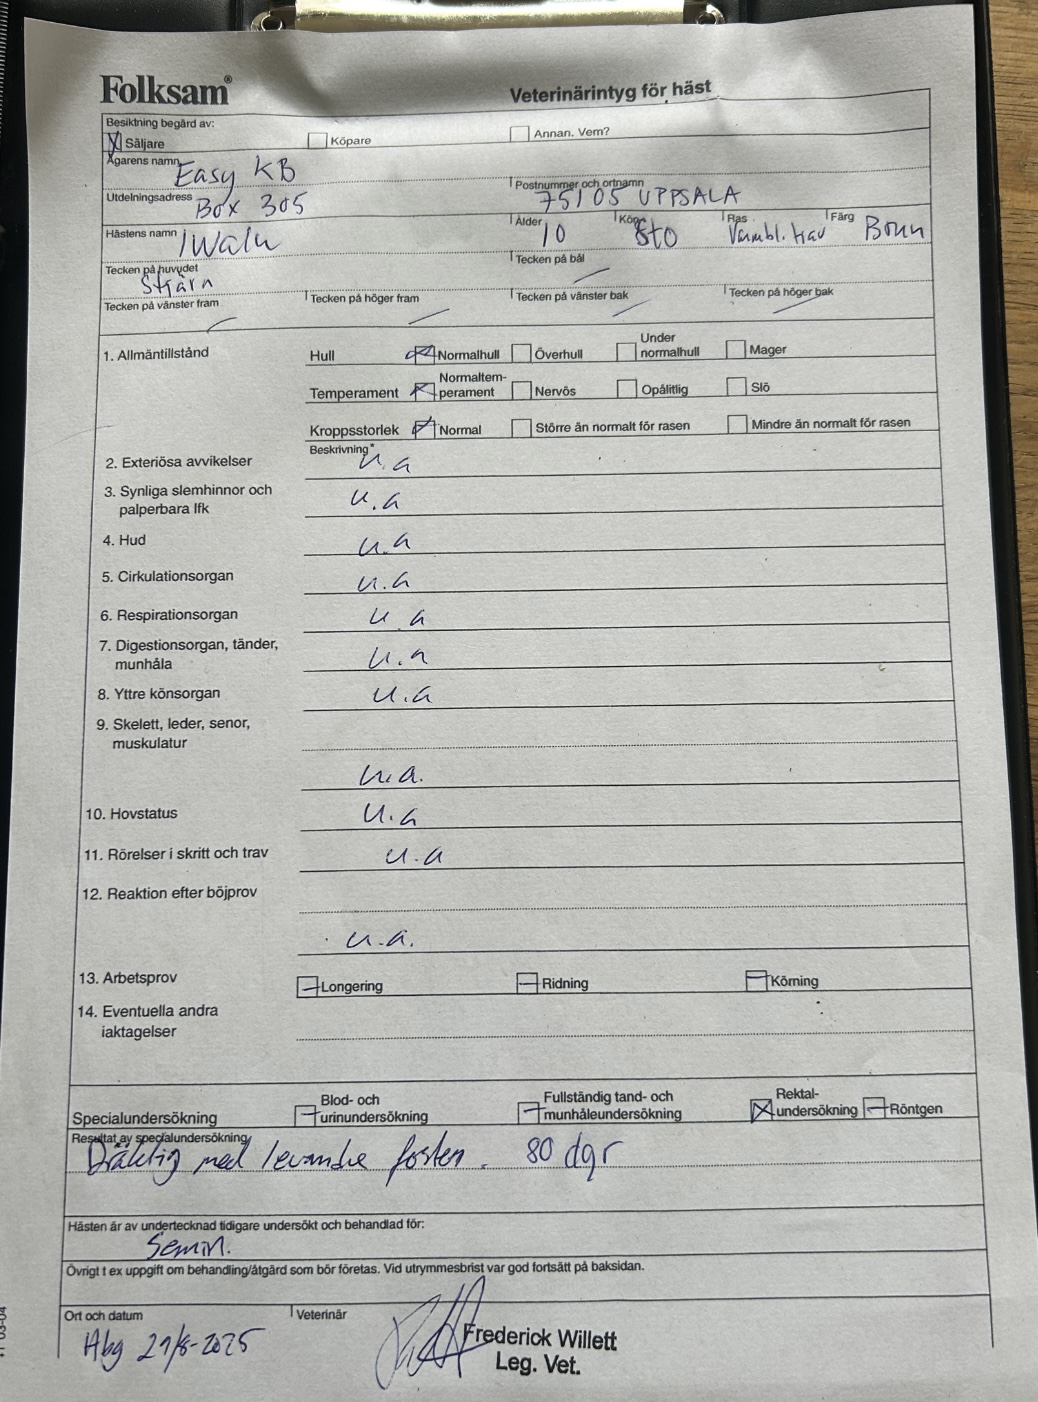 Folksam®
Veterinärintyg för häst
Besiktning begärd av:
Säljare Köpare Annan. Vem?
Ägarens namn Easy KB
Utdelningsadress Box 305 Postnummer och ortnamn 75105 UPPSALA
Hästens namn Ålder 10 Kön Sto Ras Varmbl. trav Färg Brun
Tecken på huvudet Stjärn Tecken på bål
Tecken på vänster fram Tecken på höger fram Tecken på vänster bak Tecken på höger bak
1. Allmäntillstånd Hull Normalhull Överhull Under normalhull Mager
Temperament Normaltem-perament Nervös Opålitlig Slö
Kroppsstorlek Normal Större än normalt för rasen Mindre än normalt för rasen
Beskrivning*
2. Exteriösa avvikelser u.a
3. Synliga slemhinnor och
palperbara lfk u.a
4. Hud u.a
5. Cirkulationsorgan u.a
6. Respirationsorgan u a
7. Digestionsorgan, tänder,
munhåla u.a
8. Yttre könsorgan u.a
9. Skelett, leder, senor,
muskulatur
u.a.
10. Hovstatus u.a
11. Rörelser i skritt och trav u.a
12. Reaktion efter böjprov
u.a.
13. Arbetsprov Longering Ridning Körning
14. Eventuella andra
iaktagelser
Specialundersökning Blod- och urinundersökning Fullständig tand- och munhåleundersökning Rektal-undersökning Röntgen
Resultat av specialundersökning
Dräktig med levande foster. 80 dgr
Hästen är av undertecknad tidigare undersökt och behandlad för:
Semin.
Övrigt t ex uppgift om behandling/åtgärd som bör företas. Vid utrymmesbrist var god fortsätt på baksidan.
Ort och datum Veterinär
2025
Frederick Willett
Leg. Vet.